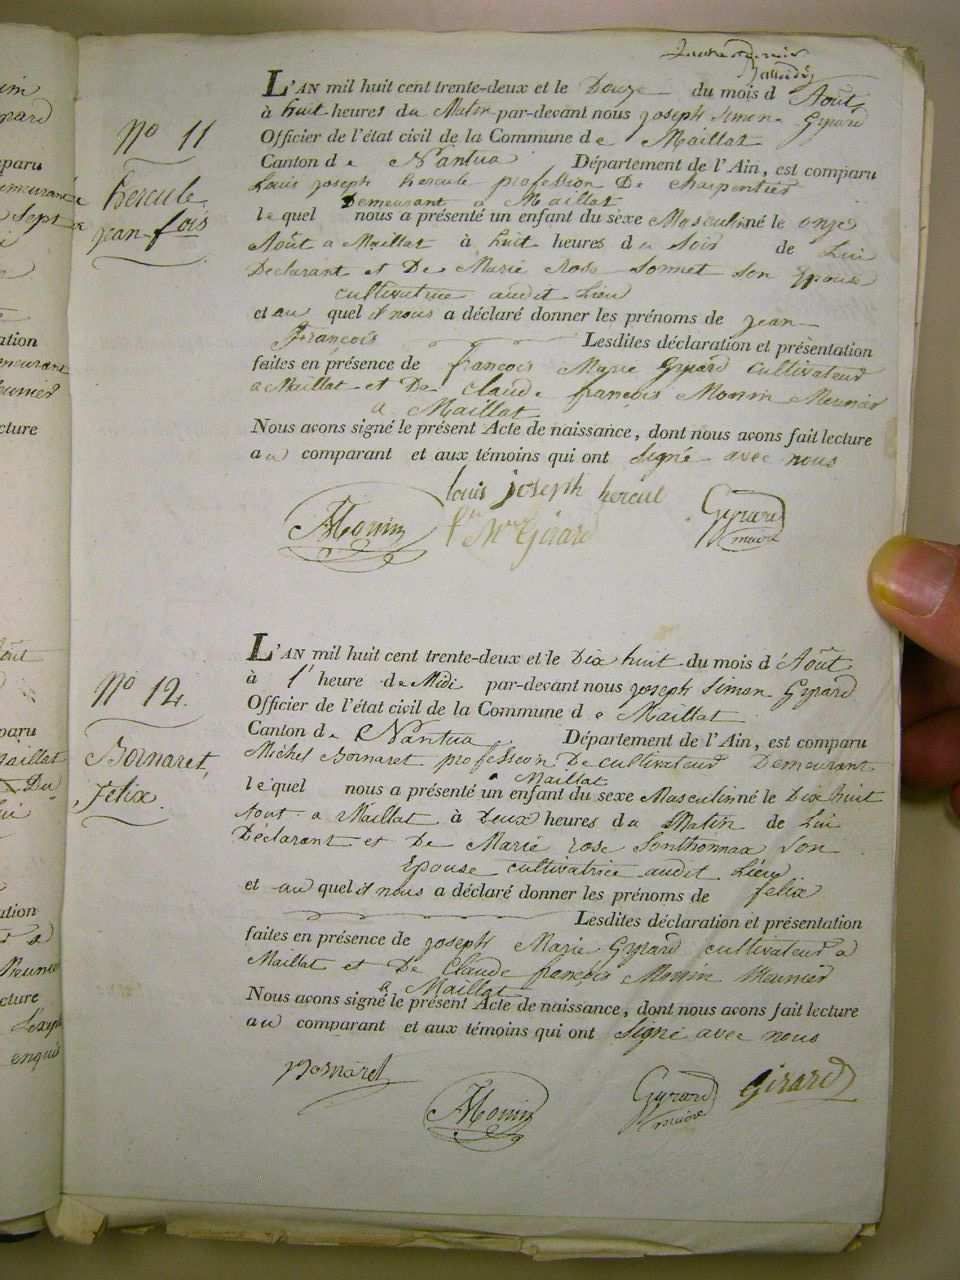 N° 11
hercule
jean-fois
L'AN mil huit cent trente-deux et le Douze du mois d Août
à huit heures du Matin par-devant nous joseph simon Gyrard
Officier de l'état civil de la Commune de Maillat
Canton de Nantua Département de l'Ain, est comparu
Louis joseph hercule profession De charpentier
Demeurant a Maillat
lequel nous a présenté un enfant du sexe Masculin né le onze
Août a Maillat à huit heures du soir de Lui
Déclarant et De Marie Rose Sonnet son Epouse
cultivatrice audit Lieu
et au quel il nous a déclaré donner les prénoms de jean-
François Lesdites déclaration et présentation
faites en présence de françois Marie Gyrard cultivateur
a Maillat et De Claude françois Monin Meunier
a Maillat
Nous avons signé le présent Acte de naissance, dont nous avons fait lecture
au comparant et aux témoins qui ont signé avec nous
louis joseph hercul
AMonin
fs Mie Girard
Gyrard
maire
N° 12.
Bornaret,
Felix.
L'AN mil huit cent trente-deux et le Dix huit du mois d'Août
à 1' heure de Midi par-devant nous joseph simon Gyrard
Officier de l'état civil de la Commune de Maillat
Canton de Nantua Département de l'Ain, est comparu
Michel Bornaret profession De cultivateur Demeurant
a Maillat
lequel nous a présenté un enfant du sexe Masculin né le Dix huit
Aout a Maillat à Deux heures du Matin de Lui
Déclarant et De Marie rose Sonthonnax son
Epouse cultivatrice audit Lieu
et au quel il nous a déclaré donner les prénoms de felix
Lesdites déclaration et présentation
faites en présence de joseph Marie Gyrard cultivateur a
Maillat et De Claude françois Monin Meunier
a Maillat
Nous avons signé le présent Acte de naissance, dont nous avons fait lecture
au comparant et aux témoins qui ont signé avec nous
Bornaret
AMonin
Gyrard
maire
Girard